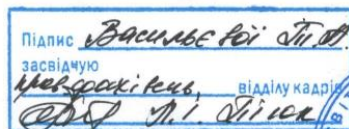 Підпис Васильєвої Т.А.
засвідчую
пров. фахівець відділу кадрів
Л.І. Тітюк